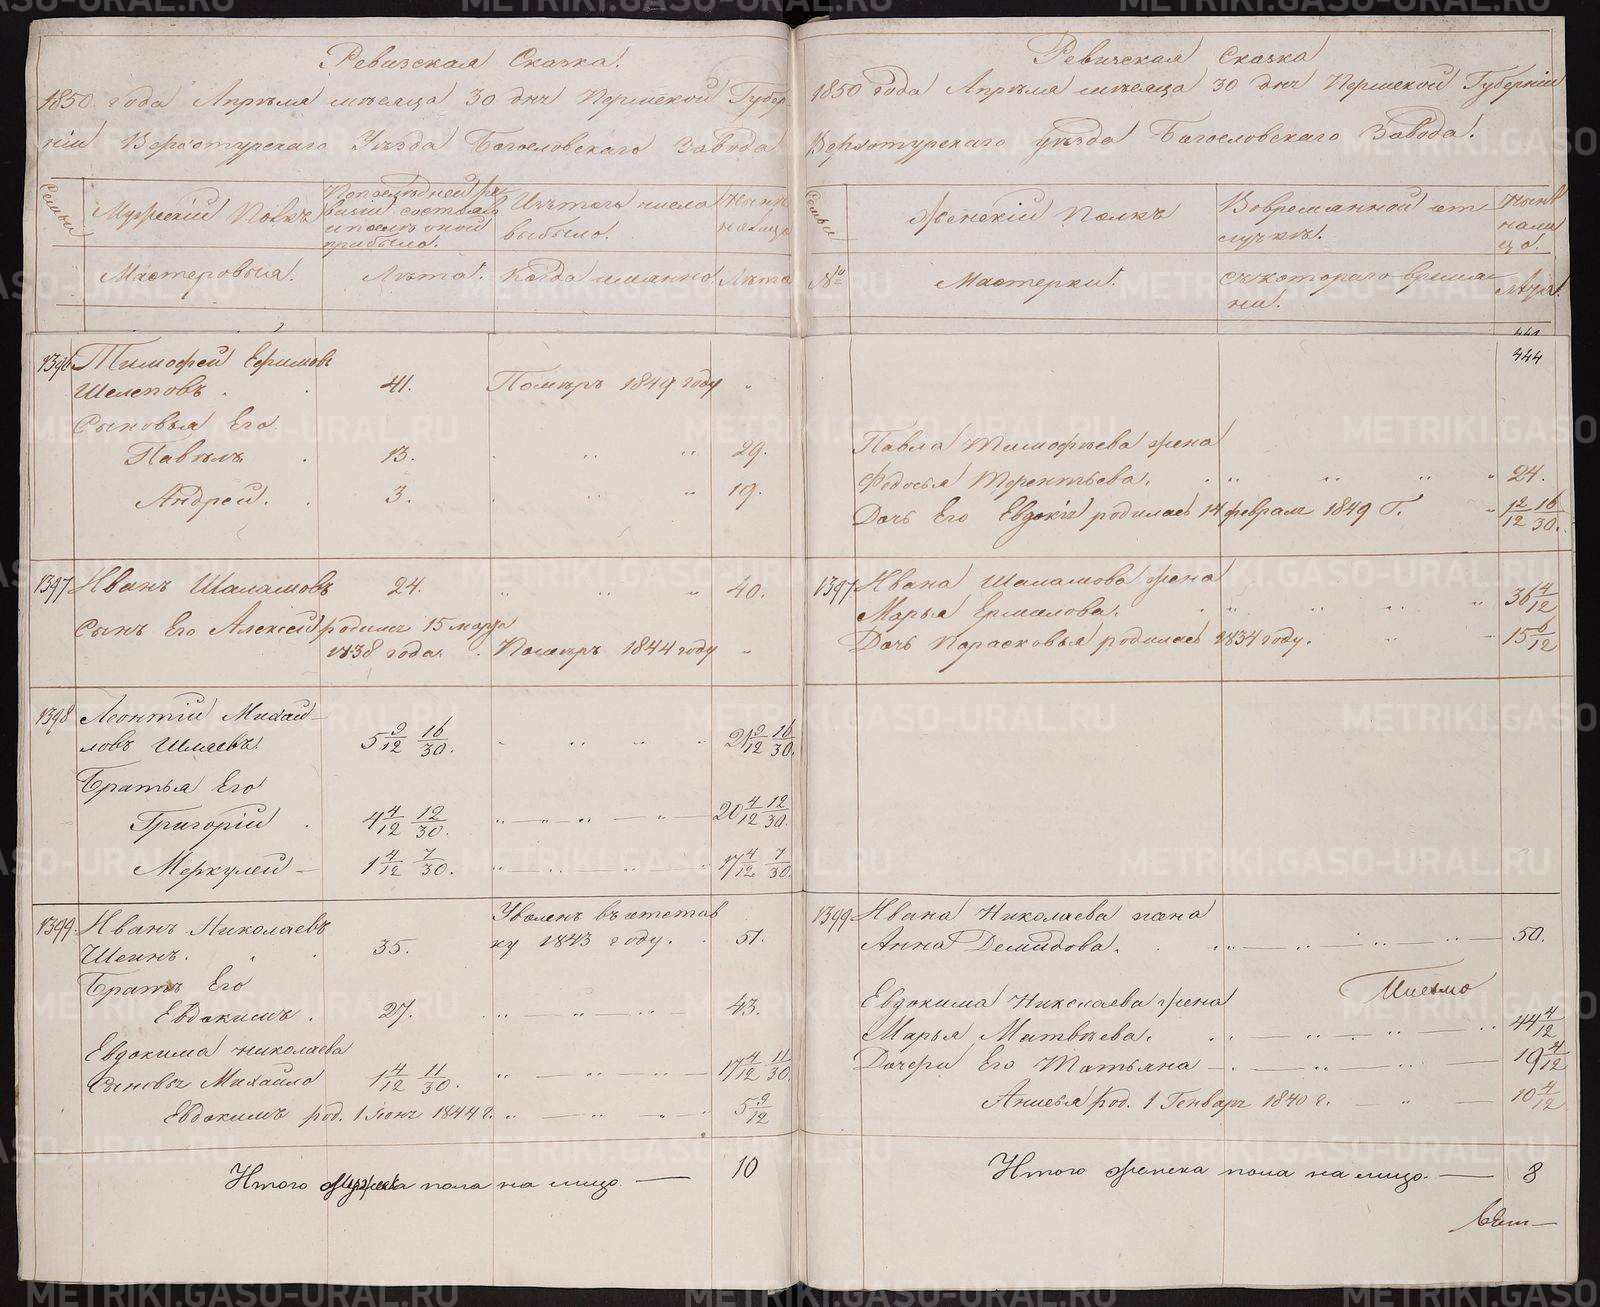 Ревизская Сказка.
1850 года Апреля месяца 30 дня Пермской Губер
нiи Верхотурскаго Уезда Богословскаго Завода
Семьи
Мужескiй Полъ
По последней ре
визiи состояло
и после оной
прибыло.
Изъ того числа
выбыло.
Ныне
на лицо
Мастеровыя.
Лета.
Когда имянно.
Лета
1396
Тимофей Ефимовъ
Шелеповъ.
41.
Померъ 1849 году
Сыновья Его
Павелъ
13.
29.
Андрей.
3.
19.
1397
Иванъ Шаламовъ
24.
40.
Сынъ Его Алексей родился 15 марта
1838 года.
Померъ 1844 году
1398
Леонтiй Михай-
ловъ Шмаевъ
5 9/12 16/30.
21 9/12 16/30.
Братья Его
Григорiй
4 4/12 12/30.
20 4/12 12/30.
Меркулей
1 4/12 7/30.
17 4/12 7/30.
1399.
Иванъ Николаевъ
Шеинъ.
35.
Уволенъ въ отстав
ку 1843 году.
51.
Братъ Его
Евдокимъ.
27.
43.
Евдокима Николаева
Сыновья Михайло
1 4/12 11/30.
17 4/12 11/30.
Евдокимъ род. 1844 г.
5 9/12
Итого мужеска пола на лицо
10
Ревизская Сказка
1850 года Апреля месяца 30 дня Пермской Губернiи
Верхотурскаго уезда Богословскаго Завода.
Семьи
Женскiй Полъ
Во временной от
лучке.
Ныне
на ли
цо.
№
Мастерки.
Съ котораго времяни.
Лета.
444
Павла Тимофеева жена
Федосья Терентьева.
24.
Дочь Его Евдокiя родилась 14 февраля 1849 г.
12/12 16/30.
1397
Ивана Шаламова жена
Марья Ермолова.
36 4/12
Дочь Парасковья родилась 1834 году.
15 6/12
1399
Ивана Николаева жена
Анна Демидова.
50.
Евдокима Николаева жена
Марья Матвеева.
44 4/12
Дочери Его Татьяна
19 4/12
Анисья род. 1 Генваря 1840 г.
10 4/12
Итого женска пола на лицо.
8
METRIKI.GASO-URAL.RU